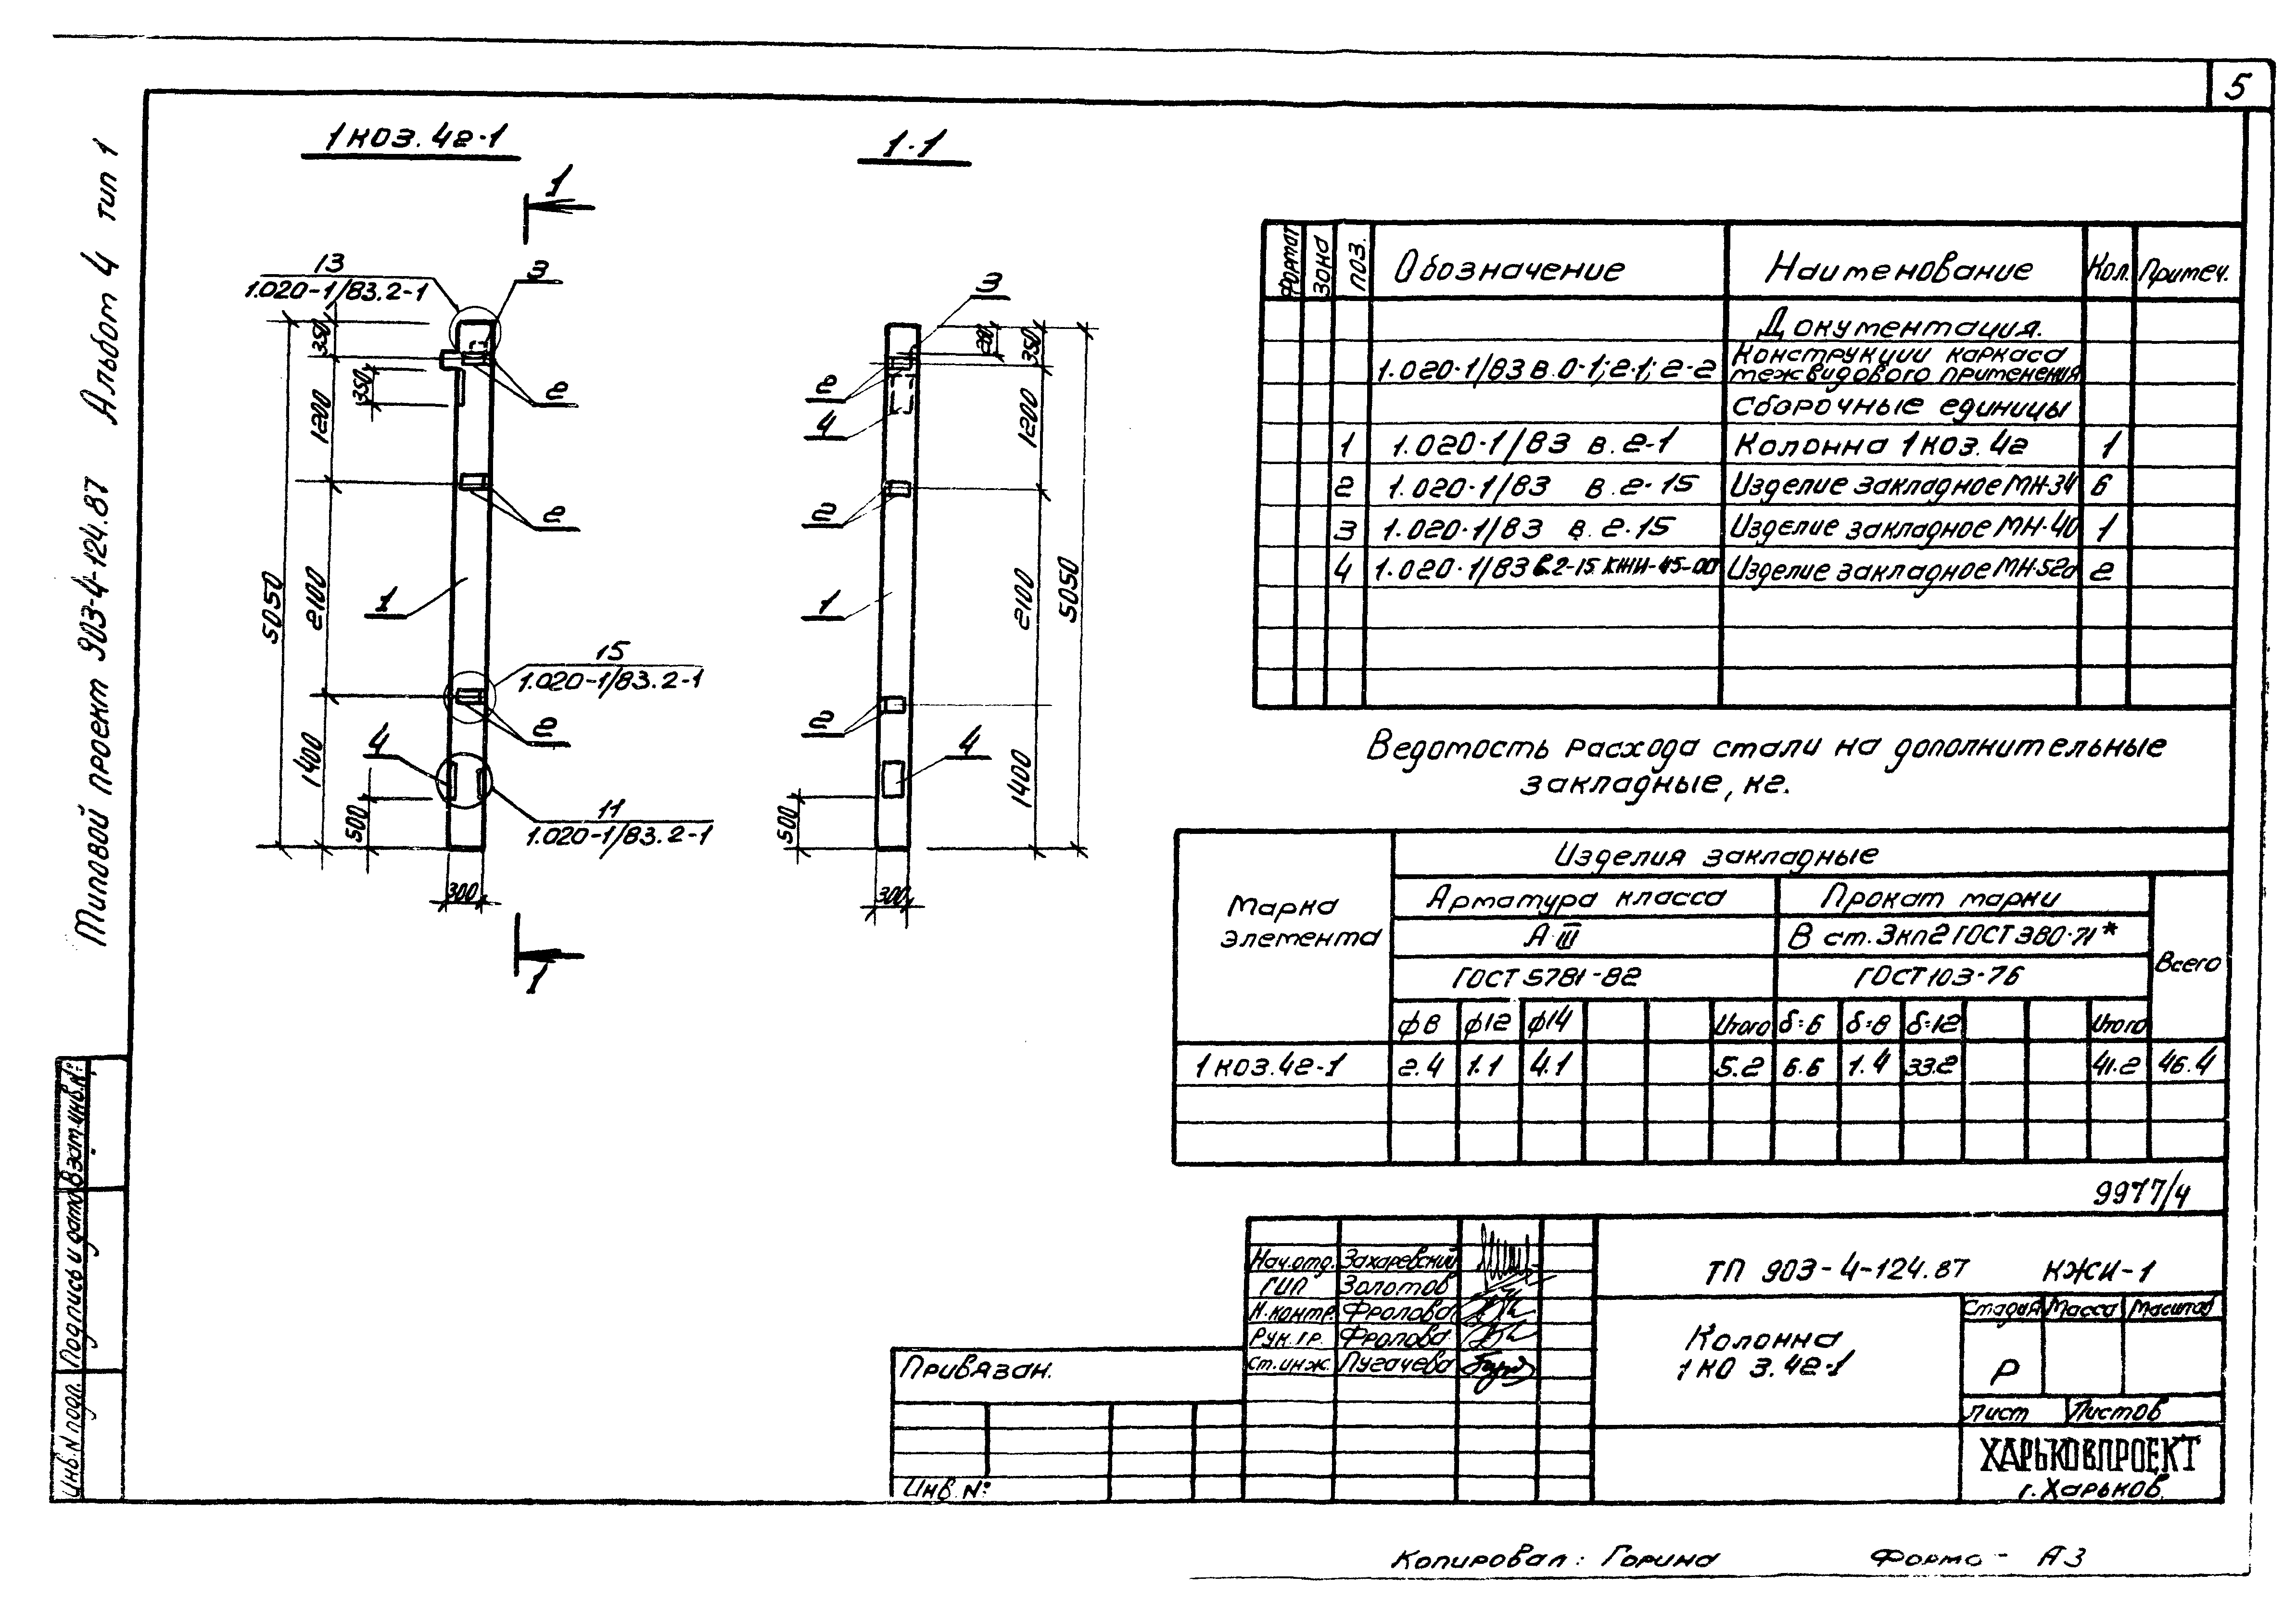 5
Типовой проект 903-4-124.87 Альбом 4 тип 1
1КО3.4г-1
1-1
1
13
1.020-1/83.2-1
3
350
350
2
1200
2
5050
2100
1
15
1.020-1/83.2-1
2
4
1400
500
11
1.020-1/83.2-1
300
1
3
200
350
2
4
1200
2
1
2100
5050
2
4
1400
500
300
Формат Зона Поз. Обозначение Наименование Кол. Примеч.
Документация.
1.020-1/83 В.0-1; 2-1; 2-2 Конструкции каркаса
межвидового применения
Сборочные единицы
1 1.020-1/83 в. 2-1 Колонна 1КО3.4г 1
2 1.020-1/83 в. 2-15 Изделие закладное МН-34 6
3 1.020-1/83 в. 2-15 Изделие закладное МН-40 1
4 1.020-1/83 в.2-15. КЖИ-45-00 Изделие закладное МН-52а 2
Ведомость расхода стали на дополнительные
закладные, кг.
Марка
элемента
Изделия закладные
Арматура класса Прокат марки
А-III В ст. 3кп2 ГОСТ 380-71*
Всего
ГОСТ 5781-82 ГОСТ 103-76
ф8 ф12 ф14 Итого δ=6 δ=8 δ=12 Итого
1КО3.4г-1 2.4 1.1 4.1 5.2 6.6 1.4 33.2 41.2 46.4
9977/4
Нач.отд. Захаревский
ГИП Золотов
Н.контр. Фролова
Рук.гр. Фролова
Ст.инж. Пугачева
ТП 903-4-124.87 КЖИ-1
Колонна
1КО 3.4г-1
Стадия Масса Масштаб
Р
Лист Листов
ХАРЬКОВПРОЕКТ
г. Харьков.
Привязан.
Инв. №:
Взам.инв.№:
Подпись и дата
Инв.N подл.
Копировал: Горина Форма - А3